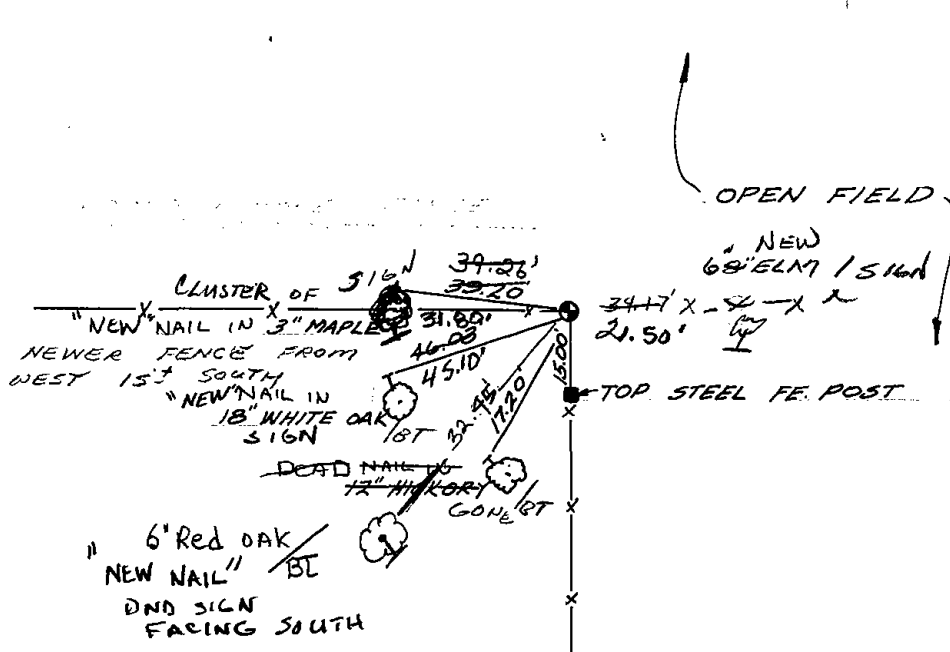 OPEN FIELD
NEW
68" ELM / SIGN
34.17' X
21.50'
SIGN
39.26'
39.20'
CLUSTER OF
"NEW" NAIL IN 3" MAPLE
31.80'
NEWER FENCE FROM
WEST 15'± SOUTH
46.03
45.10'
"NEW" NAIL IN
18" WHITE OAK
SIGN
BT
15.00
TOP STEEL FE. POST
32.45'
17.20'
DEAD NAIL IN
12" HICKORY
GONE BT
6" Red OAK
"NEW NAIL"
BT
DND SIGN
FACING SOUTH